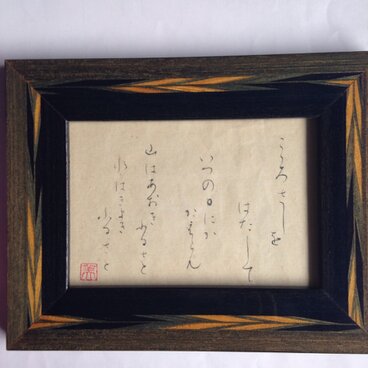 こころざしを
はたして
いつの日にか
かえらん
山はあおき
ふるさと
水はきよき
ふるさと